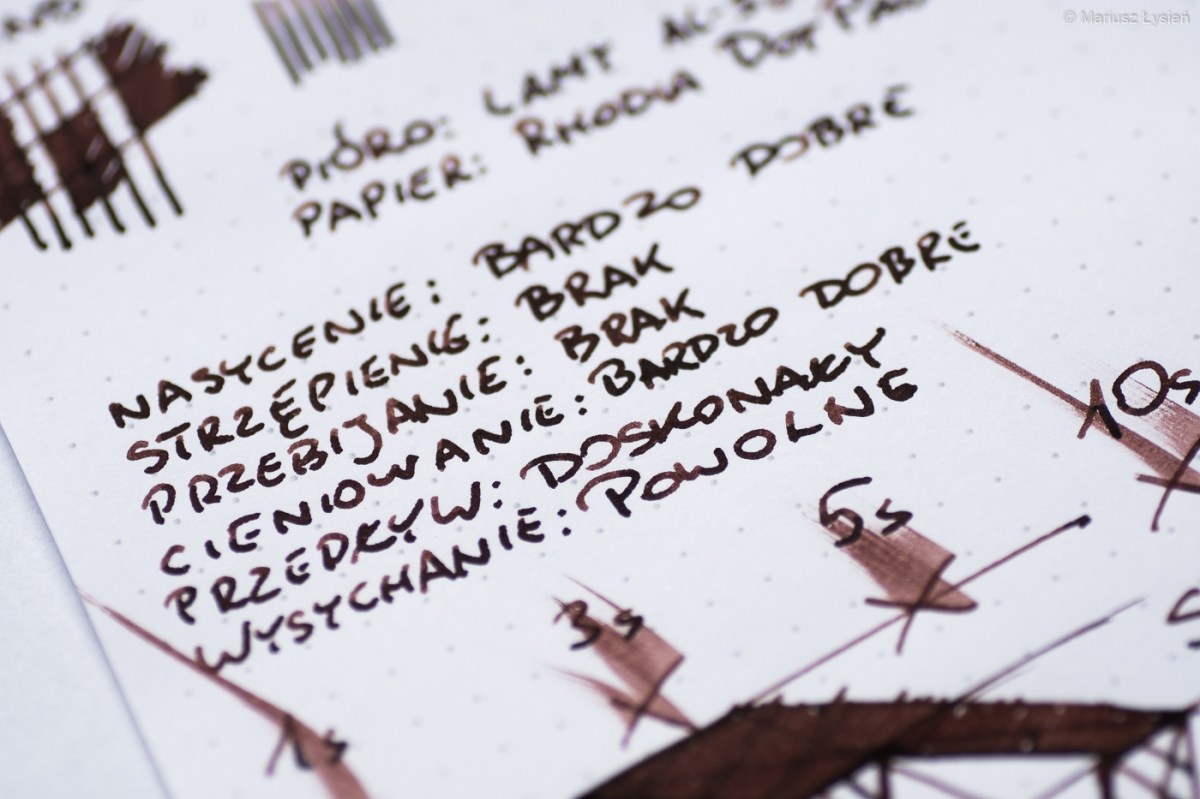 © Mariusz Łysień
PIÓRO: LAMY AL-S
PAPIER: RHODIA DOT PAD
NASYCENIE: BARDZO DOBRE
STRZĘPIENIE: BRAK
PRZEBIJANIE: BRAK
CIENIOWANIE: BARDZO DOBRE
PRZEPŁYW: DOSKONAŁY
WYSYCHANIE: POWOLNE
10s
5s
3s
1s